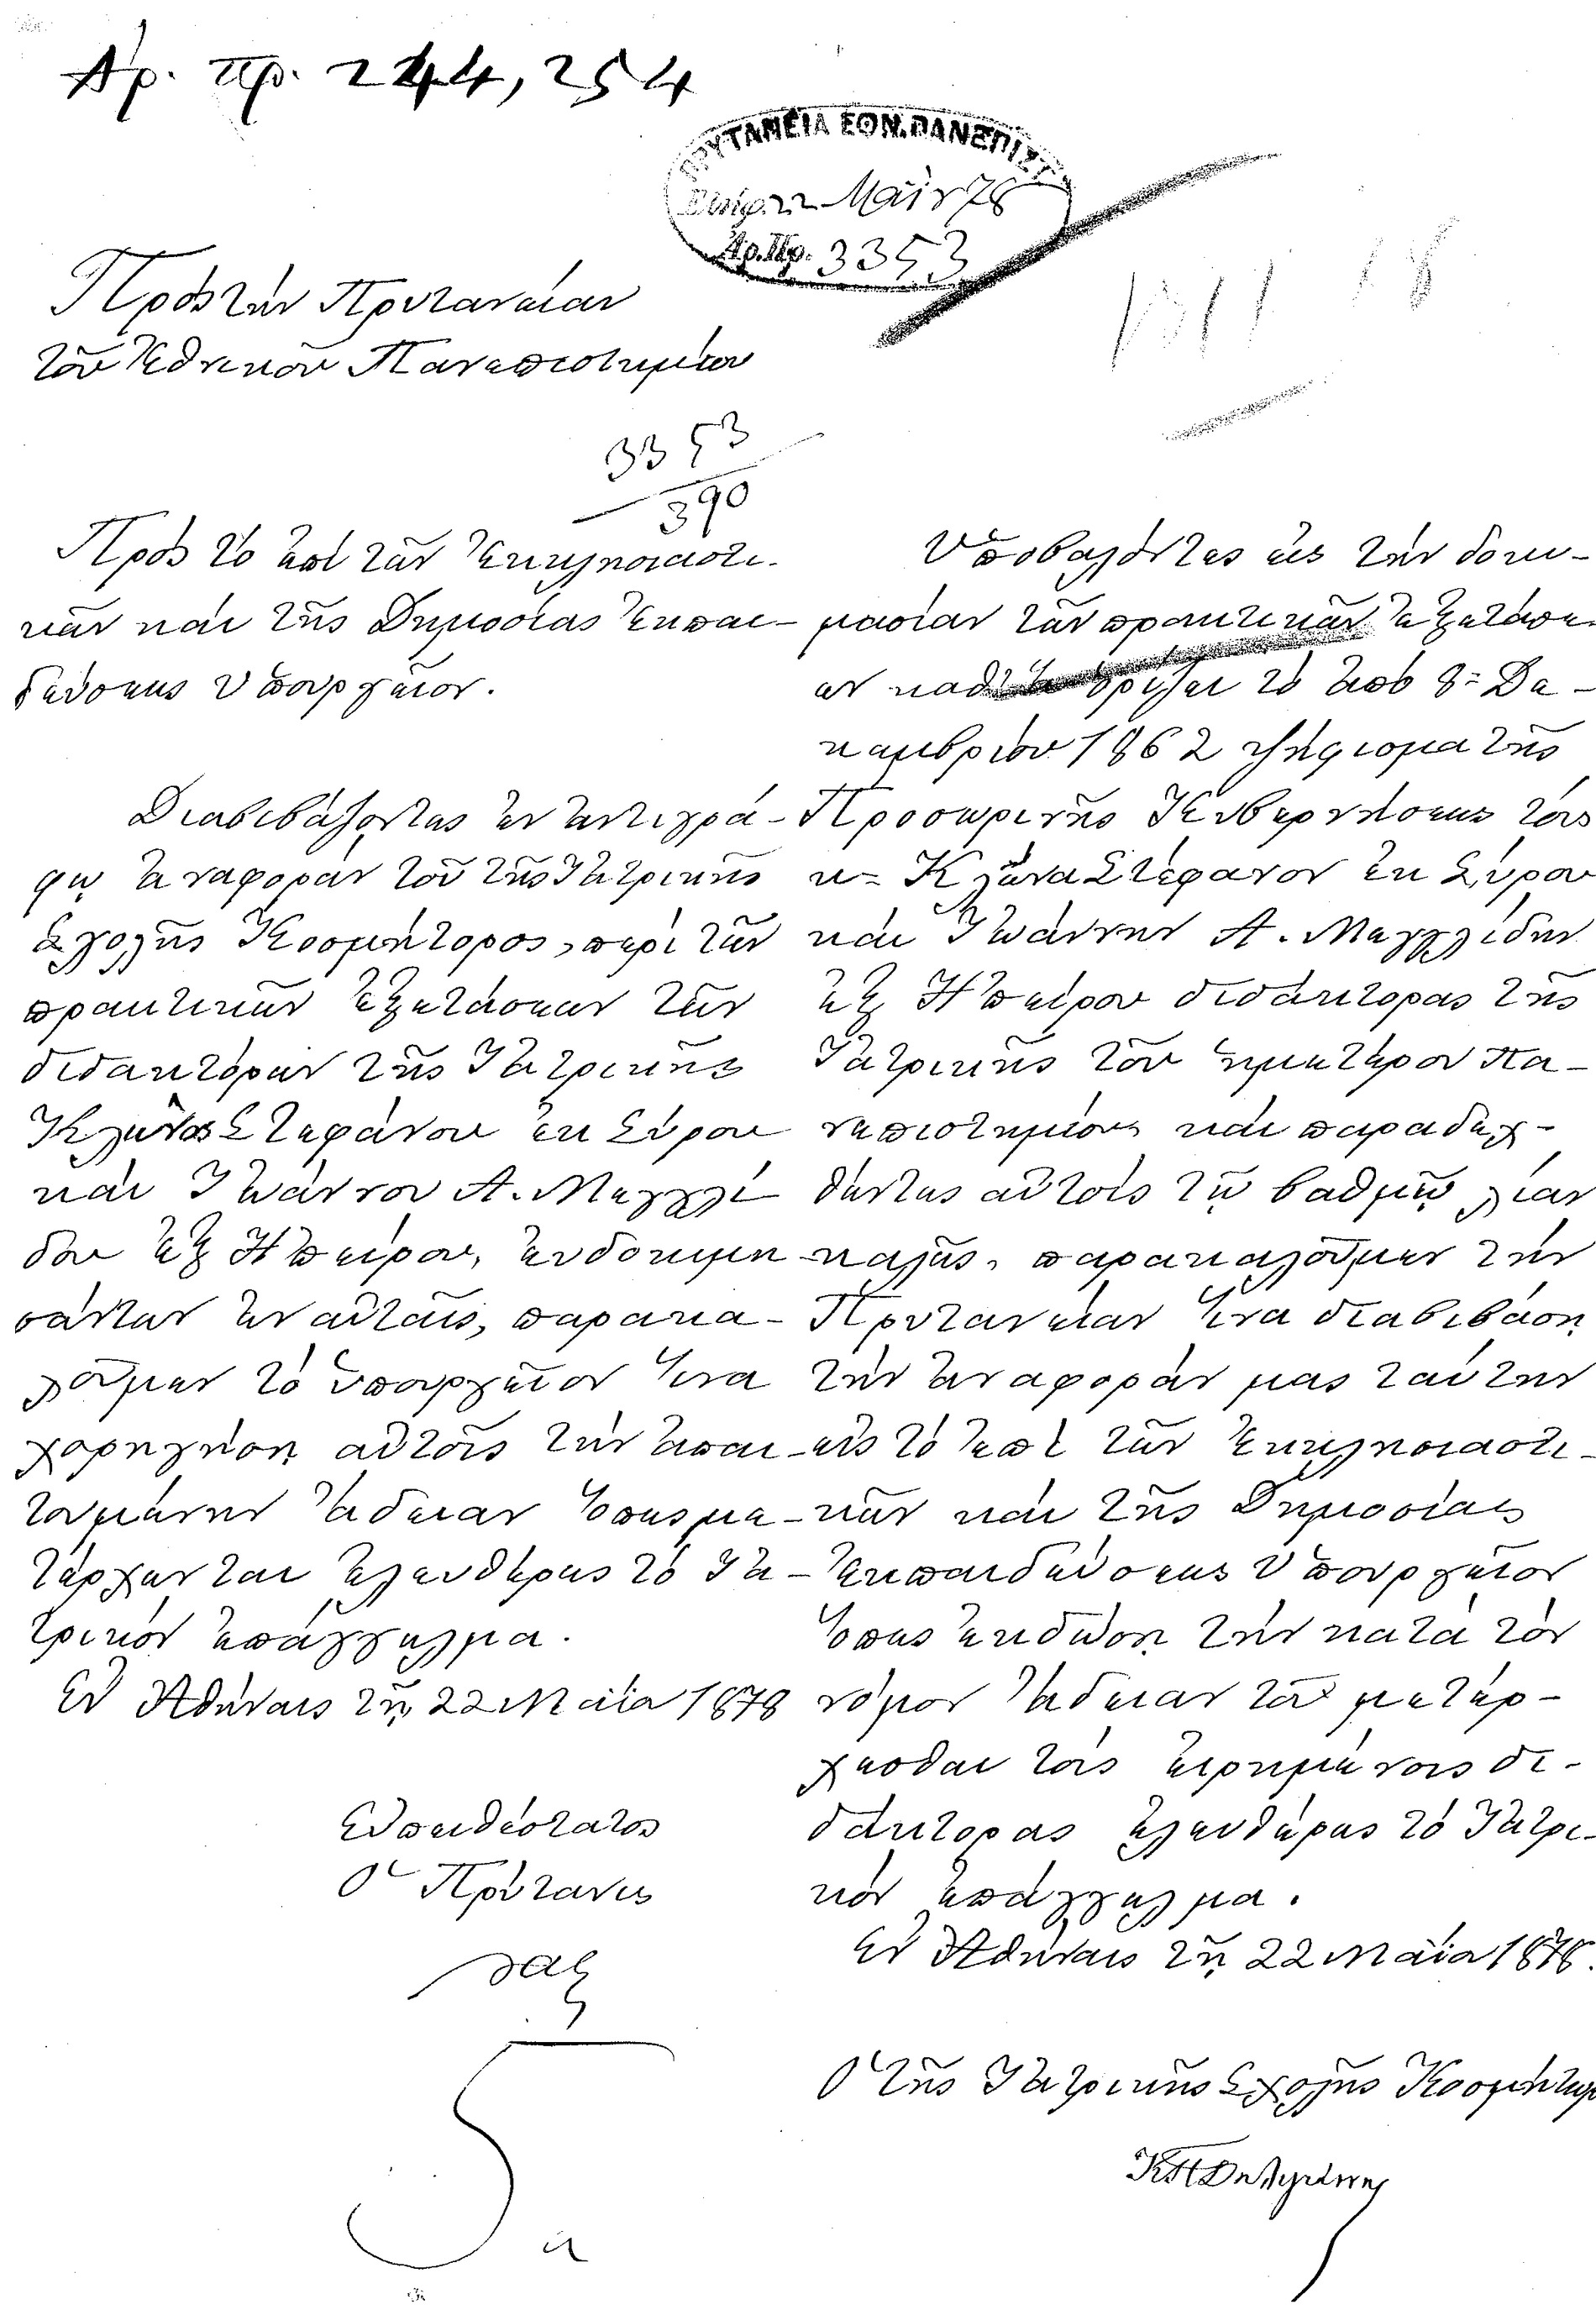 Ἀρ. πρ. 244, 254
ΠΡΥΤΑΝΕΙΑ ΕΘΝ. ΠΑΝΕΠΙΣΤ.
22 Μαΐου 78
Ἀρ. Πρ. 3353
Πρὸς τὴν Πρυτανείαν
τοῦ Ἐθνικοῦ Πανεπιστημίου
3353
390
Πρὸς τὸ ἐπὶ τῶν Ἐκκλησιαστι-
κῶν καὶ τῆς Δημοσίας Ἐκπαι-
δεύσεως Ὑπουργεῖον.
Διαβιβάζοντες ἐν ἀντιγρά-
φῳ ἀναφορὰν τοῦ τῆς Ἰατρικῆς
Σχολῆς Κοσμήτορος, περὶ τῶν
πρακτικῶν ἐξετάσεων τῶν
διδακτόρων τῆς Ἰατρικῆς
Κλῶνος Στεφάνου ἐκ Σύρου
καὶ Ἰωάννου Α. Μεγγλί
δου ἐξ Ἠπείρου, εὐδοκιμη
σάντων ἐν αὐταῖς, παρακα-
λοῦμεν τὸ ὑπουργεῖον ἵνα
χορηγήσῃ αὐτοῖς τὴν ἀπαι-
τουμένην ἄδειαν ὅπως με-
τέρχωνται ἐλευθέρως τὸ Ἰα-
τρικὸν ἐπάγγελμα.
Ἐν Ἀθήναις τῇ 22 Μαΐα 1878
Εὐπειθέστατος
Ὁ Πρύτανις
Ὑποβαλόντες εἰς τὴν δοκι-
μασίαν τῶν πρακτικῶν ἐξετάσε-
ων καθ' ἃ ὁρίζει τὸ ἀπὸ 8 = Δε-
κεμβρίου 1862 ψήφισμα τῆς
Προσωρινῆς Κυβερνήσεως τοὺς
κ = Κλῶνα Στέφανον ἐκ Σύρου
καὶ Ἰωάννην Α. Μεγγλίδην
ἐξ Ἠπείρου διδάκτορας τῆς
Ἰατρικῆς τοῦ ἡμετέρου Πα-
νεπιστημίου καὶ παραδεχ-
θέντες αὐτοὺς τῷ βαθμῷ λίαν
καλῶς, παρακαλοῦμεν τὴν
Πρυτανείαν ἵνα διαβιβάσῃ
τὴν ἀναφοράν μας ταύτην
εἰς τὸ ἐπὶ τῶν Ἐκκλησιαστι-
κῶν καὶ τῆς Δημοσίας
Ἐκπαιδεύσεως Ὑπουργεῖον
ὅπως ἐκδώσῃ τὴν κατὰ τὸν
νόμον ἄδειαν τοῦ μετέρ-
χεσθαι τοὺς εἰρημένους δι-
δάκτορας ἐλευθέρως τὸ Ἰατρι-
κὸν ἐπάγγελμα.
Ἐν Ἀθήναις τῇ 22 Μαΐα 1878.
Ὁ τῆς Ἰατρικῆς Σχολῆς Κοσμήτωρ